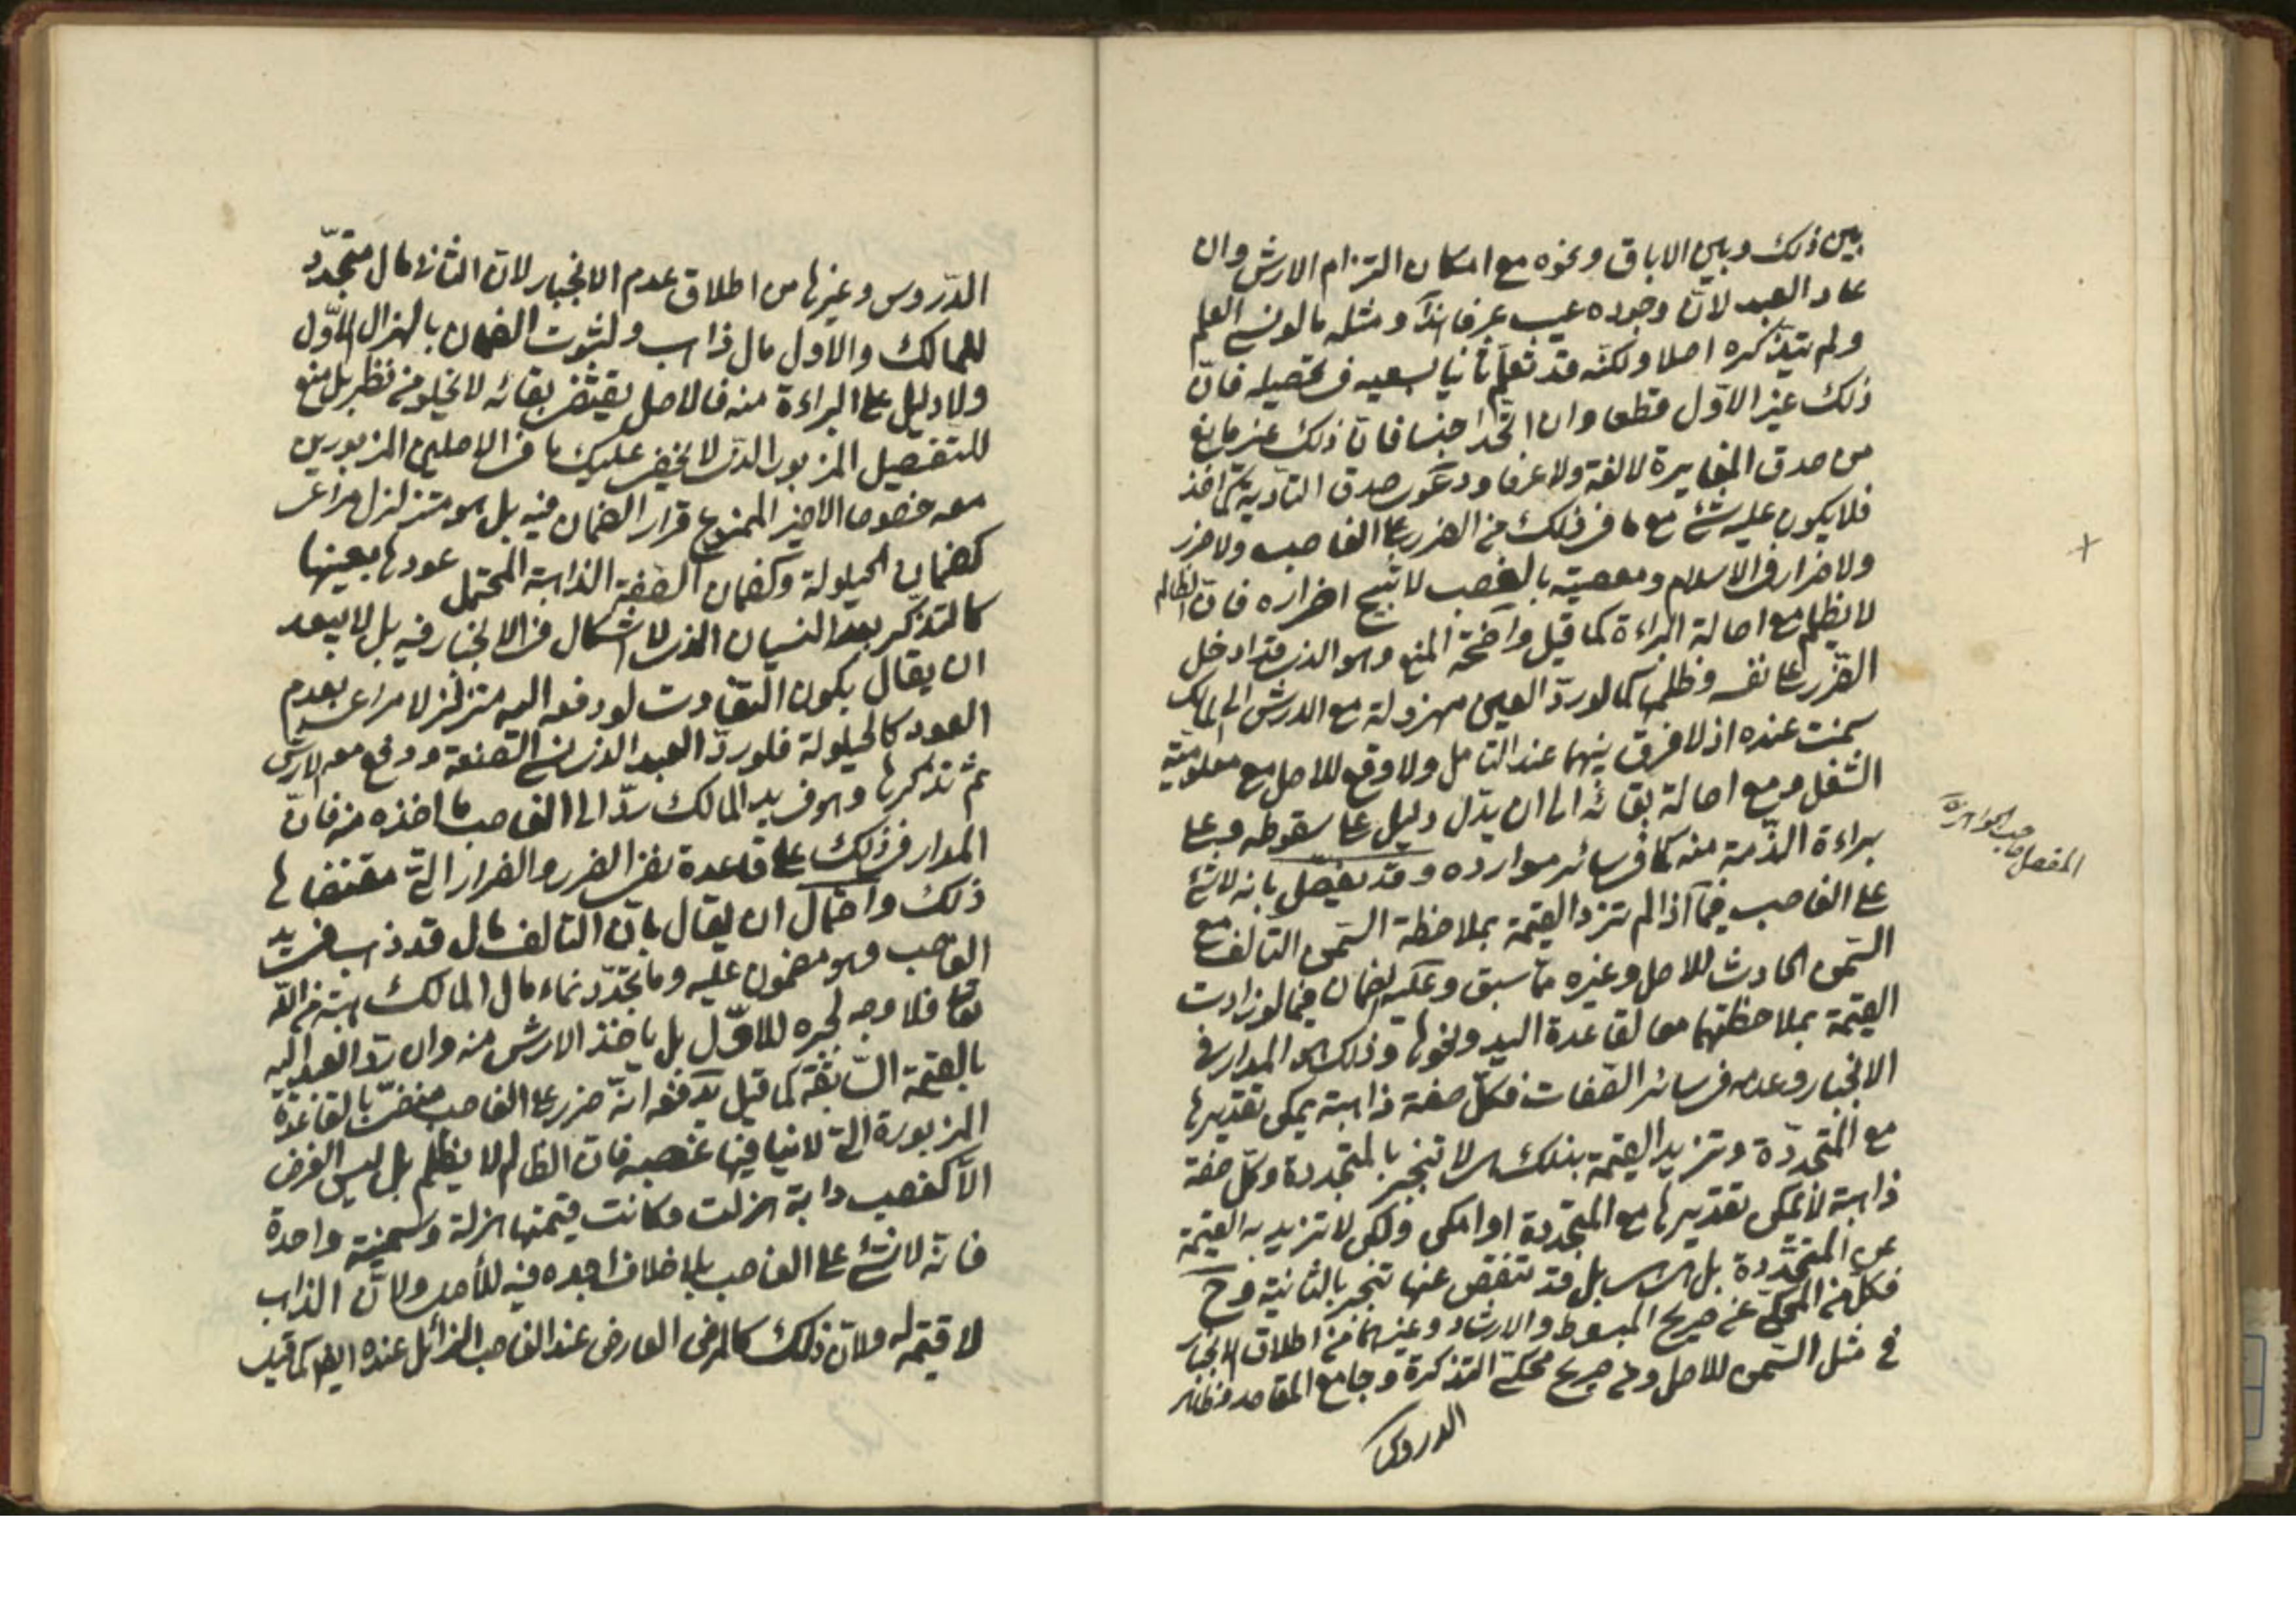 بين ذلك وبين الاباق ونحوه مع امكان التزام الارش وان
عاد العبد لان وجوده عيب عرفا ومثله ما لو نسي العلم
ولم يتذكره اصلا ولكنه قد تعلم ثانيا بسعيه في تحصيله فان
ذلك غير الاول قطعا وان اتحدا جنسا فان ذلك غير مانع
من صدق المغايرة لا لغة ولا عرفا ودعوى صدق التأدية لما اخذ
فلا يكون عليه شئ مع ما في ذلك من الضرر على الغاصب ولا ضرر
ولا ضرار في الاسلام ومعصيته بالغصب لا تبيح اضراره فان الظالم
لا يظلم مع اصالة البراءة كما قيل واضحة المنع وهو الذي قد ادخل
الضرر على نفسه وظلمها كما لو رد العين مهزولة مع الارش الى المالك
سمنت عنده اذ لا فرق بينهما عند التامل ولا وقع للاصل مع معلومية
الشغل ومع اصالة بقائه الى ان يدل دليل على سقوطه وعلى
براءة الذمة منه كما في سائر موارده وقد يفصل بانه لا شئ
على الغاصب فيما اذا لم تزد القيمة بملاحظة السمن التالف مع
السمن الحادث للاصل وغيره مما سبق وعليه الضمان فيما لو زادت
القيمة بملاحظتهما معا لقاعدة اليد ونحوها وذلك هو المدار في
الانجبار وعدمه في سائر الصفات فكل صفة ذاهبة يمكن تقديرها
مع المتجددة وتزيد القيمة بذلك لا تنجبر بالمتجددة وكل صفة
ذاهبة لا يمكن تقديرها مع المتجددة او امكن ولكن لا تزيد به القيمة
عن المتجددة بل قد تنقص عنها تنجبر بالثانية وح
فكل من المحكي عن صريح المبسوط والارشاد وغيرهما من اطلاق الانجبار
في مثل السمن للاصل وعن صريح محكي التذكرة وجامع المقاصد وظاهر
الدروس
المفصل صاحب الجواهر
الدروس وغيرها من اطلاق عدم الانجبار لان الثاني مال متجدد
للمالك والاول مال ذاهب ولثبوت الضمان بالهزال الاول
ولا دليل على البراءة منه فالاصل يقتضي بقائه لا يخلو من نظر بل منع
للتفصيل المزبور الذي لا يخفى عليك ما في الاصلين المزبورين
معه خصوصا الاخير الممنوع قرار الضمان فيه بل هو متزلزل مراعى
كضمان الحيلولة وكضمان الصفة الذاهبة المحتمل عودها بعينها
كالتذكر بعد النسيان الذي لا اشكال في الانجبار فيه بل لا يبعد
ان يقال بكون التفاوت لو دفعه اليه متزلزلا مراعى بعدم
العود كالحيلولة فلو رد العبد الذي نسي الصنعة ودفع معه الارش
ثم تذكرها وهو في يد المالك رد الى الغاصب ما اخذه منه فان
المدار في ذلك على قاعدة نفي الضرر والضرار التي مقتضاها
ذلك واحتمال ان يقال بان التالف مال قد ذهب في يد
الغاصب وهو مضمون عليه وما تجدد نماء مال المالك هبة من الله
تعالى فلا وجه لجبره للاول بل ياخذ الارش منه وان رد العبد اليه
بالقيمة السابقة كما قيل يدفعه انه ضرر على الغاصب منفي بالقاعدة
المزبورة التي لا ينافيها غصبه فان الظالم لا يظلم بل ليس الفرض
الا كغصب دابة هزلت وكانت قيمتها هزلة وسمينة واحدة
فانه لا شئ على الغاصب بلا خلاف اجده فيه للأصل ولان الذاهب
لا قيمة له ولان ذلك كالمرض العارض عند الغاصب الزائل عنده ايضا كما قيل